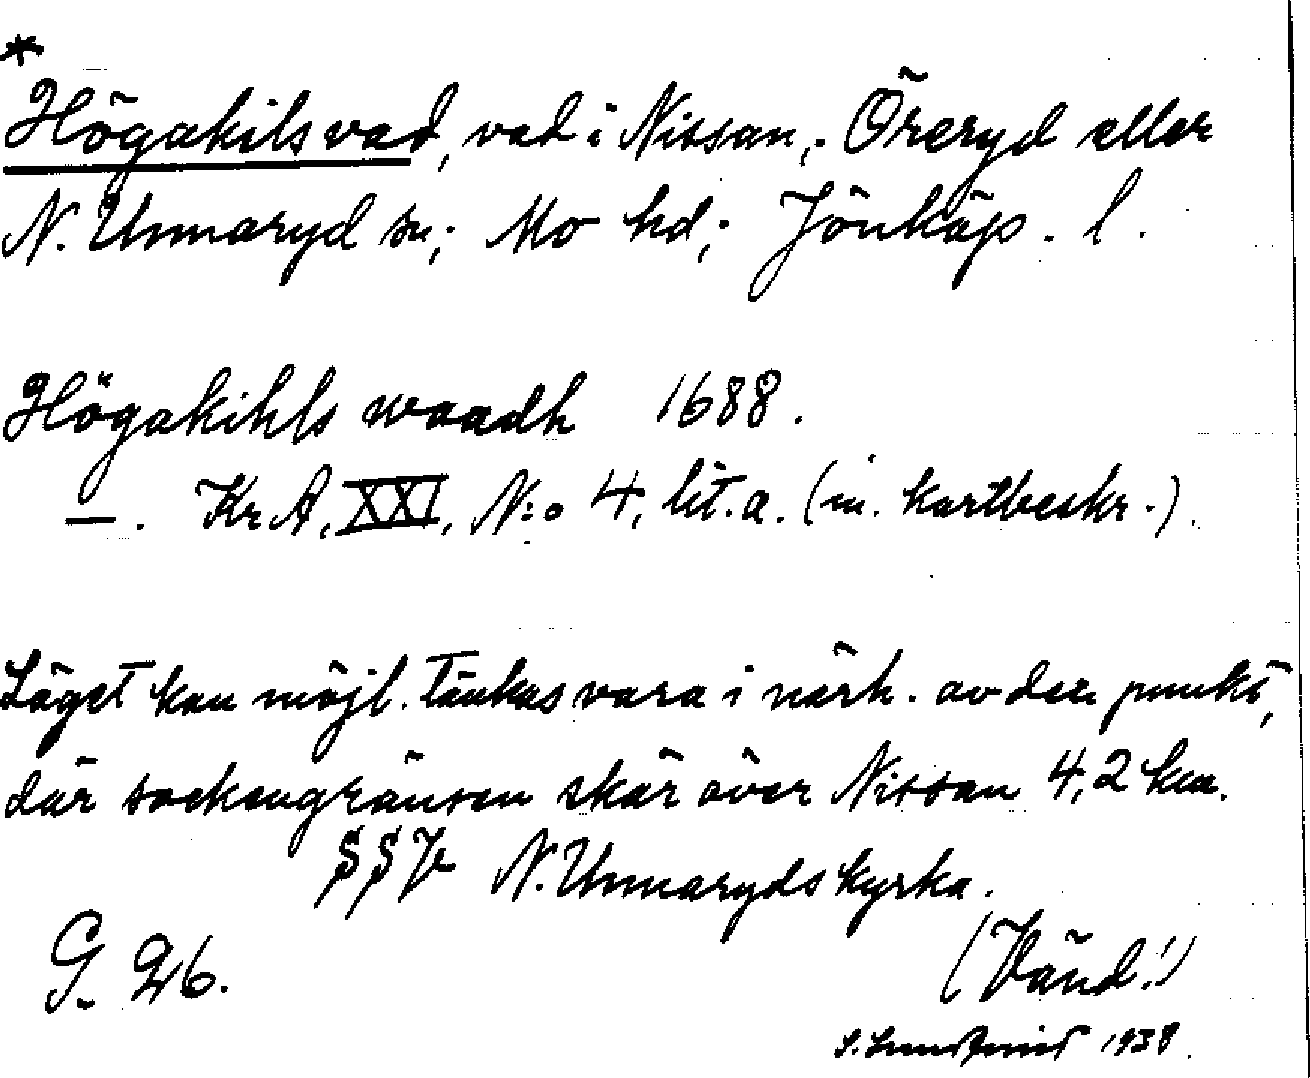 *
Högakilsvad, vad i Nissan, Öreryd eller
N. Unnaryd sn; Mo hd; Jönköp. l.
Högakihls waadh 1688.
—. KrA, XXI, N:o 4, lit. a. (m. kartbeskr.).
Läget kan möjl. tänkas vara i närh. av den punkt,
där sockengränsen skär över Nissan 4,2 km.
N. Unnaryds kyrka.
G. 26.
(Vänd!)
1938.